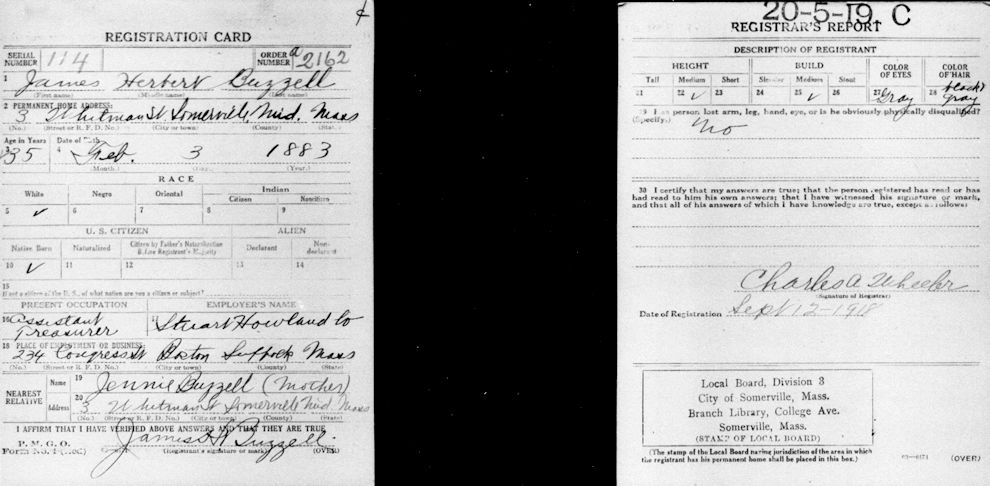 REGISTRATION CARD
SERIAL NUMBER 114 ORDER NUMBER a2162
1 James Herbert Buzzell
(First name) (Middle name) (Last name)
2 PERMANENT HOME ADDRESS:
3 Whitman St. Somerville, Mid. Mass
(No.) (Street or R. F. D. No.) (City or town) (County) (State)
Age in Years Date of Birth
3 35 4 Feb. 3 1883
(Month.) (Day.) (Year.)
RACE
White Negro Oriental Indian
Citizen Noncitizen
5 ✓ 6 7 8 9
U. S. CITIZEN ALIEN
Native Born Naturalized Citizen by Father's Naturalization Before Registrant's Majority Declarant Non-declarant
10 ✓ 11 12 13 14
15
If not a citizen of the U. S., of what nation are you a citizen or subject?
PRESENT OCCUPATION EMPLOYER'S NAME
16 Assistant Treasurer 17 Stuart Howland Co
18 PLACE OF EMPLOYMENT OR BUSINESS:
234 Congress St Boston Suffock Mass
(No.) (Street or R. F. D. No.) (City or town) (County) (State)
NEAREST RELATIVE
Name 19 Jennie Buzzell (Mother)
Address 20 3 Whitman St Somerville Mid. Mass
(No.) (Street or R. F. D. No.) (City or town) (County) (State)
I AFFIRM THAT I HAVE VERIFIED ABOVE ANSWERS AND THAT THEY ARE TRUE
P. M. G. O.
Form No. 1 (Red) James H Buzzell
(Registrant's signature or mark) (OVER)
20-5-19, C
REGISTRAR'S REPORT
DESCRIPTION OF REGISTRANT
HEIGHT BUILD COLOR OF EYES COLOR OF HAIR
Tall Medium Short Slender Medium Stout
21 22 ✓ 23 24 25 ✓ 26 27 Gray 28 black & gray
29 Has person lost arm, leg, hand, eye, or is he obviously physically disqualified?
(Specify.) No
30 I certify that my answers are true; that the person registered has read or has
had read to him his own answers; that I have witnessed his signature or mark,
and that all of his answers of which I have knowledge are true, except as follows:
Charles A Wheeler
(Signature of Registrar)
Date of Registration Sept 12-1918
Local Board, Division 3
City of Somerville, Mass.
Branch Library, College Ave.
Somerville, Mass.
(STAMP OF LOCAL BOARD)
(The stamp of the Local Board having jurisdiction of the area in which
the registrant has his permanent home shall be placed in this box.) (OVER)